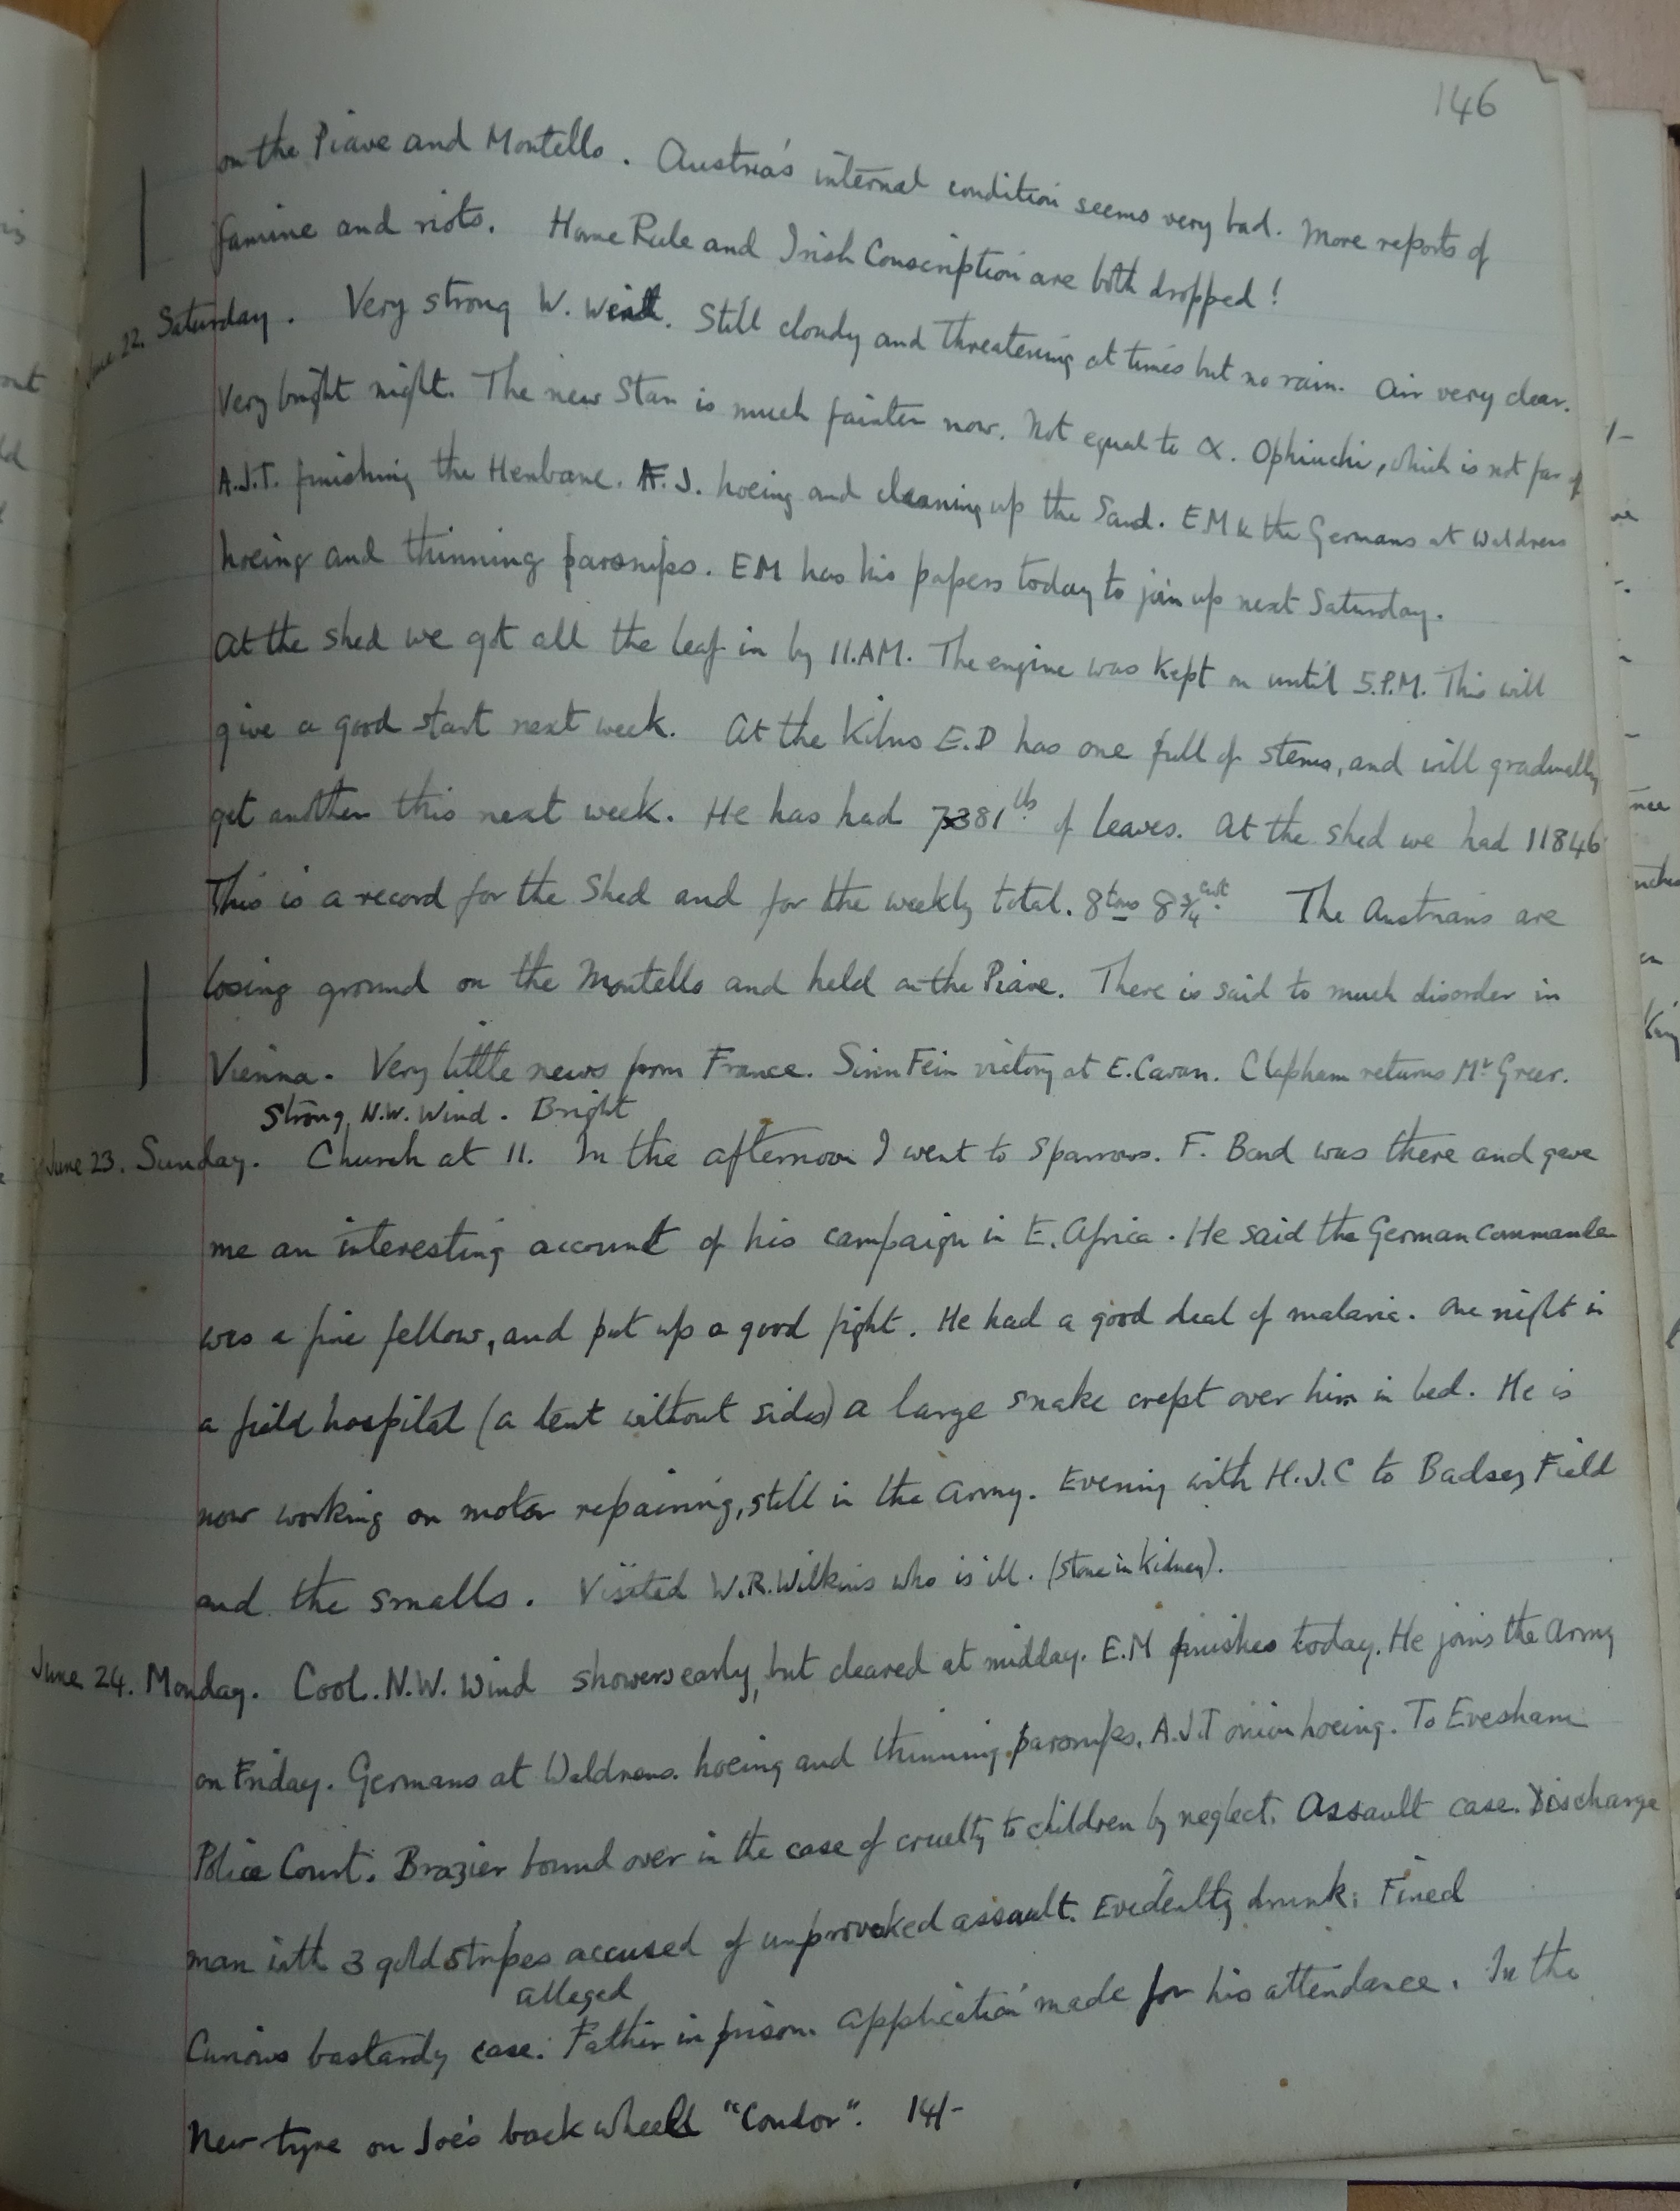 146
on the Piave and Montello. Austria's internal condition seems very bad. More reports of
famine and riots. Home Rule and Irish Conscription are both dropped!
June 22. Saturday. Very strong W. Wind. Still cloudy and threatening at times but no rain. Air very clear.
Very bright night. The new Star is much fainter now. Not equal to α. Ophiuchi, which is not far off
A.J.T. finishing the Henbane. F.J. hoeing and cleaning up the Sand. E.M & the Germans at Waldrens
hoeing and thinning parsnips. EM has his papers today to join up next Saturday.
At the shed we got all the leaf in by 11.AM. The engine was kept on until 5.P.M. This will
give a good start next week. At the Kilns E.D has one full of stems, and will gradually
get another this next week. He has had 7381 lbs of leaves. At the shed we had 11846
This is a record for the Shed and for the weekly total. 8 tons 8¾ cwt. The Austrians are
losing ground on the Montello and held on the Piave. There is said to much disorder in
Vienna. Very little news from France. Sinn Fein victory at E. Cavan. Clapham returns Mr Greer.
Strong N.W. Wind. Bright
June 23. Sunday. Church at 11. In the afternoon I went to Sparrows. F. Bond was there and gave
me an interesting account of his campaign in E. Africa. He said the German Commander
was a fine fellow, and put up a good fight. He had a good deal of malaria. One night in
a field hospital (a tent without sides) a large snake crept over him in bed. He is
now working on motor repairing, still in the Army. Evening with H.J.C to Badsey Field
and the smalls. Visited W.R. Wilkins who is ill. (Stone in Kidney).
June 24. Monday. Cool. N.W. Wind showers early, but cleared at midday. E.M finishes today. He joins the Army
on Friday. Germans at Waldrens. hoeing and thinning parsnips. A.J.T onion hoeing. To Evesham
Police Court. Brazier bound over in the case of cruelty to children by neglect. Assault case. Discharge
man with 3 gold stripes accused of unprovoked assault. Evidently drunk. Fined
alleged
Curious bastardy case. Father in prison. Application made for his attendance. In the
New tyre on Joe's back wheel "Condor". 14/-